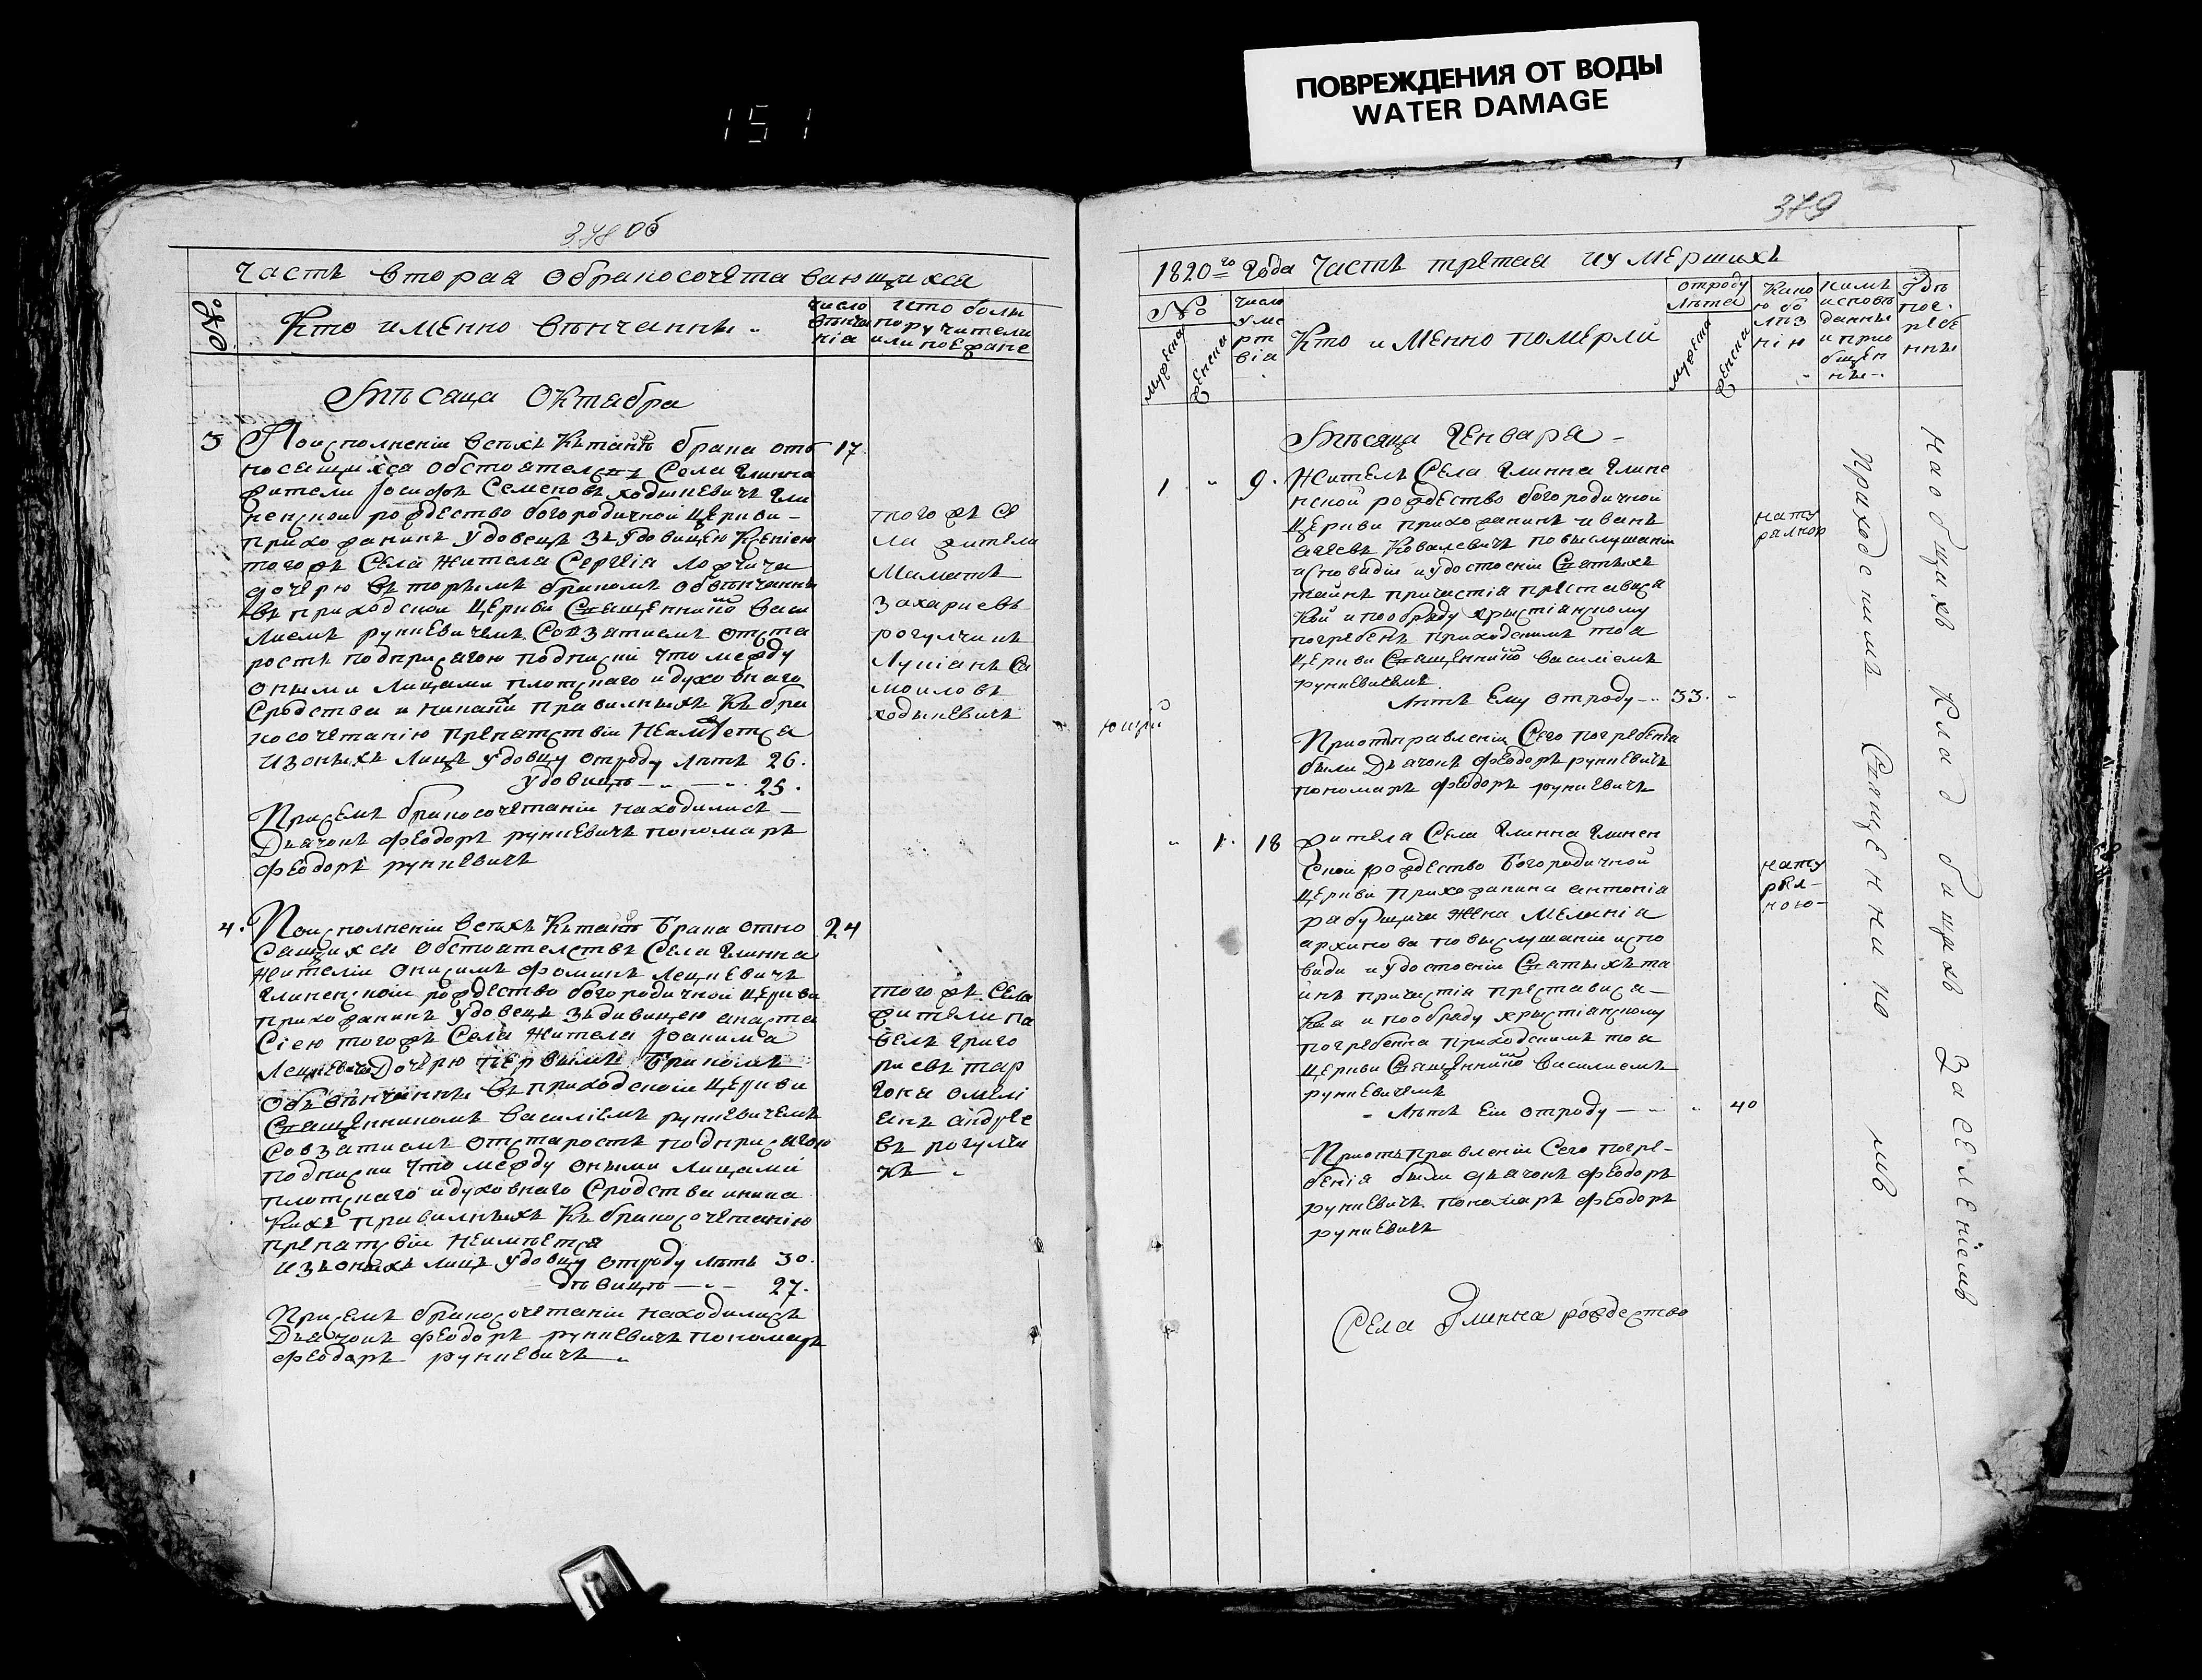 ПОВРЕЖДЕНИЯ ОТ ВОДЫ
WATER DAMAGE
151
378 об
Часть вторая обракосочетавающихся
№
Кто именно венчанны
число венча ніа
кто были
поручители
или поезжане
Мѣсяца Октября
3 Поисполненіи всѣхъ Кътаинѣ брака отъ 17
носящихся обстоятелствъ Села Глинна
жители Іосифъ Семеновъ ходыневичъ Гли
ненской рождество богородичной Церкви
прихожанинъ удовецъ зъ удовицею Ксеніею
тогожъ Села жителя Сергіа
дочерю въторымъ бракомъ обвѣнчанны
въ приходской Церкви Священникомъ Васи
лиемъ рункевичемъ Совзятиемъ отста
ростъ подприсягою подписки что между
оными лицами плотскаго и духовнаго
Сродства и никакихъ правилныхъ къ бра
косочетанію препятствіи неимѣется
изоныхъ лицъ удовцу отроду лѣтъ 26.
удовицѣ 25.
Присемъ бракосочетаніи находились
Дьячокъ феодоръ рункевичъ пономаръ
феодоръ рункевичъ
тогожъ Се
ла жители
Маматъ
Захариевъ
рогулчикъ
Лукіанъ Са
моиловъ
ходыневичъ
4. Поисполненіи всѣхъ Кътаинѣ Брака отно 24
сящихся обстоятелствъ Села Глинна
жителіи Онисимъ Фоминъ Лецкевичъ
Глиненской рождество богородичной церкви
прихожанинъ удовецъ зъ дивицею анаста
сіею тогожъ Села жителя Іоакима
Лецкевича Дочерю первымъ Бракомъ
Обвѣнчанны въ приходскоіи церкви
Священникомъ Василіемъ рункевичемъ
Совзятиемъ отстаростъ подприсягою
подписки что между оными лицами
плотскаго и духовнаго Сродства и ника
кихъ правилныхъ Къ бракосочетанію
препятствіи неимѣется
Изъоныхъ лицъ удовцу отроду лѣтъ 30.
дѣвицѣ 27.
Присемъ бракосочетаніи находились
Дьячокъ феодоръ рункевичъ пономаръ
феодоръ рункевичъ
тогожъ Села
жители па
велъ григо
риевъ тар
гона омелі
анъ андрее
въ рогулчи
къ
379
1820го года Часть третая оумершихъ
№
мужеска
женска
число
уме
рт
віа
Кто именно померли
отроду
лѣта
мужеска
женска
Какою бо лѣзнію
кимъ
исповѣ
данны
и прио
бщен
ны
Гдѣ
пог
ребе
нны
Мѣсяца Генваря
1 9. Житель Села Глинна Глине
нской рождество богородичной
церкви прихожанинъ иванъ
агеевъ Ковалевичъ повыслушаніи
исповидіи и удостоеніи Святыхъ
тайнъ причастія преставися
Кой и пообряду христіанскому
погребенъ приходскимъ тоя
церкви Священникомъ Василіемъ
рункевичемъ
Лѣтъ Ему отроду 33.
Приотправленіи Сего погребенія
были Дьячокъ феодоръ рункевичъ
пономаръ феодоръ рункевичъ
нату
ралною
1. 18 жителя Села Глинна Глинен
ской рождество Богородичной
церкви прихожанина антонія
жена Меланіа
архипова повыслушаніи испо
види и удостоеніи Святыхъ та
инъ причастіи преставися
Коя и пообряду христіанскому
погребенна приходскимъ тоя
Церкви Священникомъ Василиемъ
рункевичемъ
Лѣтъ Еіи отроду 40
Приотъправленіи Сего погре
бенія были дьячокъ феодоръ
рункевичъ пономаръ феодоръ
рункевичъ
нату
рал
ною
Приходскимъ Священникомъ
наобщихъ кладбищахъ Заселеніемъ
Села Глинна рождество